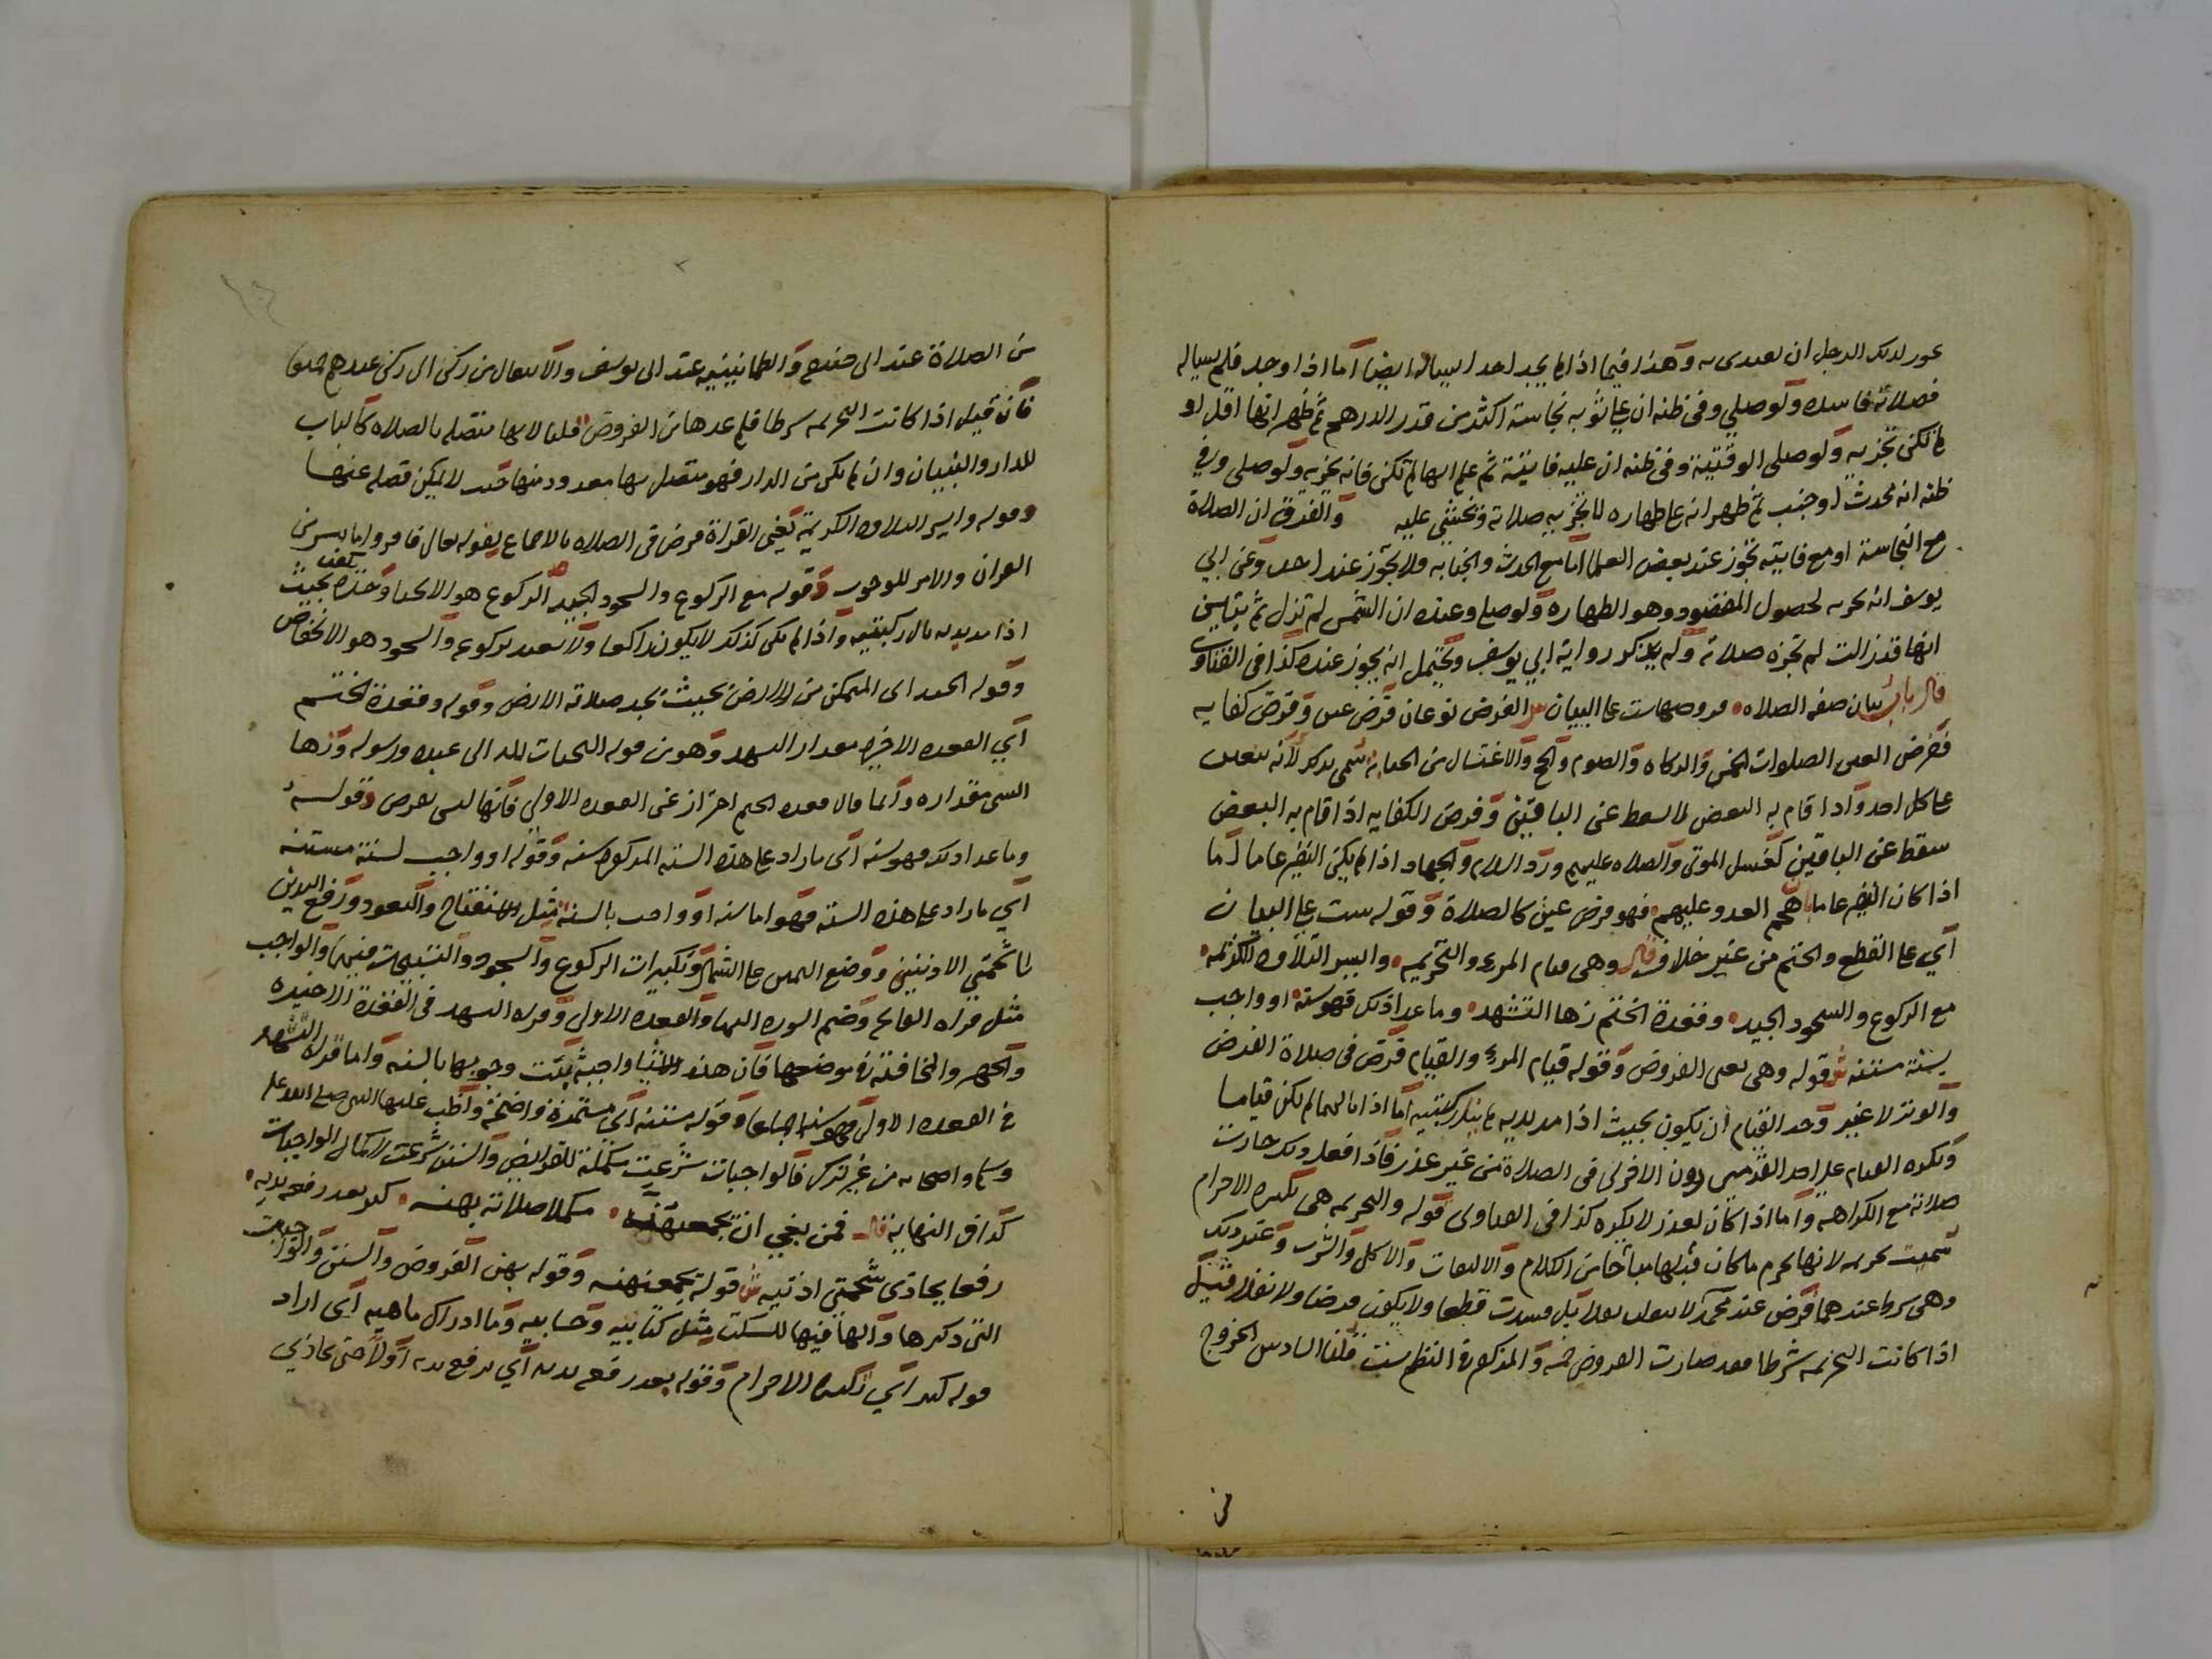 لذلك الرجل ان وهذا فيما اذا لم يجد احد ايضا اما اذا وجد فلم
فصلاته فاسده ولو صلي وفي ظنه ان علي ثوبه نجاسة اكثر من قدر الدرهم ثم ظهر انها اقل او
لم تكن تجزيه ولو صلى الوقتية وفي ظنه ان عليه فايتة ثم علم انها لم تكن فانه تجزيه ولو صلى وفي
ظنه انه محدث او جنب ثم ظهر انه على طهاره لا تجزيه صلاته ويخشي عليه والفرق ان الصلاة
مع النجاسة او مع فايته تجوز عند بعض العلما اما مع الحدث والجنابه ولا تجوز عند احد وعن ابي
يوسف انه تجزيه لحصول المقصود وهو الطهاره ولو صلي وعنده ان الشمس لم تزل ثم يتبين
انها قد زالت لم تجزه صلاته ولم يذكر رواية ابي يوسف ويحتمل انه يجوز عنده كذا في الفتاوى
قال باب بيان صفه الصلاه فروضها ست على البيان ش الفرض نوعان فرض عين وفرض كفايه
ففرض العين الصلوات الخمس والزكاه والصوم والحج والاغتسال من الجنابه سمي بذلك لانه يتعين
على كل احد واذا قام به البعض لا يسقط عن الباقين وفرض الكفايه اذا قام به البعض
سقط عن الباقين كغسل الموتى والصلاه عليهم ورد السلام والجهاد اذا لم يكن النفير عاما اما
اذا كان النفير عاما بان هجم العدو عليهم فهو فرض عين كالصلاة وقوله ست على البيان
اي على القطع والحتم من غير خلاف قال وهي قيام المرء والتحريمه وايسر التلاوه الكريمه
مع الركوع والسجود الجيد وقعدة الختم زها التشهد وما عدا ذلك فهو سنه او واجب
بسنة مستنه ش قوله وهي يعني الفروض وقوله قيام المرء والقيام فرض في صلاة الفرض
والوتر لا غير وحد القيام ان يكون بحيث اذا مد يديه لم ينل ركبتيه اما اذا نالهما لم يكن قياما
ويكره القيام على احد القدمين دون الاخرى في الصلاة من غير عذر فاذا فعل ذلك جازت
صلاته مع الكراهه واما اذا كان لعذر لا يكره كذا في الفتاوى قوله والتحريمه هي تكبيره الاحرام
سميت تحريمه لانها تحرم ما كان قبلها مباحا من الكلام والالتفات والاكل والشرب وغير ذلك
وهي شرط عندهما فرض عند محمد قطعا ولا يكون فرضا ولا نفلا فان قيل
اذا كانت التحريمه شرطا فقد صارت الفروض خمسه والمذكور في النظم ست قلنا السادس الخروج
من
من الصلاة عند ابي حنيفه والطمانينيه عند ابي يوسف والانتقال من ركن الى ركن عندهم جميعا
فان قيل اذا كانت التحريمه شرطا فلم عدها من الفروض قلنا لانها متصله بالصلاه كالباب
للدار والبنيان وان لم يكن من الدار فهو متصل بها معدود منها حيث لا يمكن فصله عنها
وقوله وايسر التلاوه الكريمة يعني القراة فرض في الصلاه بالاجماع بقوله تعالى فاقروا ما تيسر من
القران والامر للوجوب وقوله مع الركوع والسجود الجيد الركوع هو الانحنا وحده بحيث
اذا مد يديه نال ركبتيه واذا لم يكن كذلك لا يكون راكعا ولا يعتد بركوعه والسجود هو الانخفاض
وقوله الجيد اي المتمكن من الارض بحيث يجد صلابة الارض وقوله وقعدة الختم
اي القعده الاخيره مقدار التشهد وهو من قوله التحيات لله الى عبده ورسوله وزها
الشي مقداره وانما قال قعده الختم احتراز عن القعده الاولي فانها ليس بفرض وقوله
وما عدا ذلك فهو سنه اي ما زاد على هذه السته المذكوره سنه وقوله او واجب بسنة مستنه
اي ما زاد على هذه السته فهو اما سنه او واجب بالسنه مثل الاستفتاح والتعوذ ورفع اليدين
الى شحمتي الاذنين ووضع اليمين على الشمال وتكبيرات الركوع والسجود والتسبيحات فيهما والواجب
مثل قراه الفاتحه وضم السوره اليها والقعده الاولى وقراه التشهد في القعدة الاخيره
والجهر والمخافته في موضعها فان هذه الاشيا واجبة ثبت وجوبها بالسنه واما قراه التشهد
في القعده الاولى فهو سنه اجماعا وقوله مستنه اي مستمرة واضحة واظب عليها النبي صلى الله عليه
وسلم واصحابه من غير ترك فالواجبات شرعت مكملة للفرايض والسنن شرعت لاكمال الواجبات
كذا في النهاية قال فمن بغي ان يجمعهنه مكملا صلاته بهنه كبر بعد رفعه يديه
رفعا يحاذي شحمتي اذنيه ش قوله يجمعنهنه وقوله بهن الفروض والسنن والواجبات
التي ذكرها والها فيها للسكت مثل كتابيه وحسابيه وما ادراك ماهيه اي اراد
قوله كبر اي تكبيره الاحرام وقوله بعد رفعه يديه اي يرفع يديه اولا حتى يحاذي